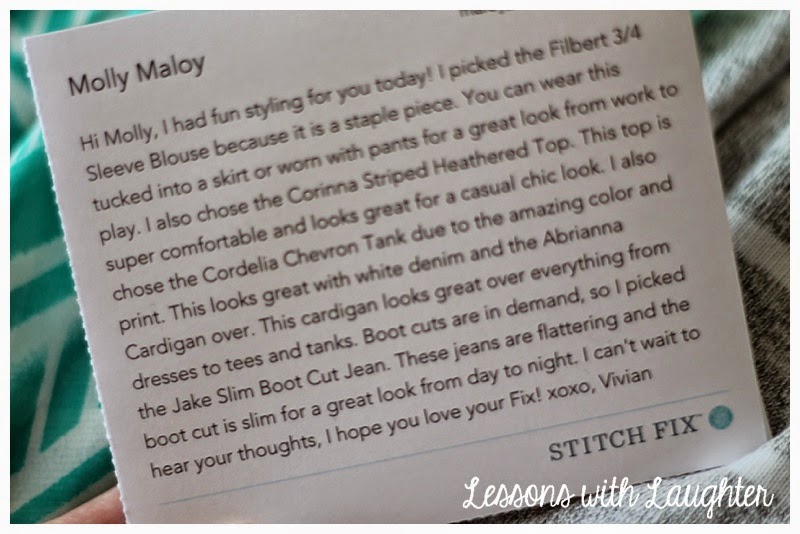 Molly Maloy
Hi Molly, I had fun styling for you today! I picked the Filbert 3/4
Sleeve Blouse because it is a staple piece. You can wear this
tucked into a skirt or worn with pants for a great look from work to
play. I also chose the Corinna Striped Heathered Top. This top is
super comfortable and looks great for a casual chic look. I also
chose the Cordelia Chevron Tank due to the amazing color and
print. This looks great with white denim and the Abrianna
Cardigan over. This cardigan looks great over everything from
dresses to tees and tanks. Boot cuts are in demand, so I picked
the Jake Slim Boot Cut Jean. These jeans are flattering and the
boot cut is slim for a great look from day to night. I can't wait to
hear your thoughts, I hope you love your Fix! xoxo, Vivian
STITCH FIX
Lessons with Laughter